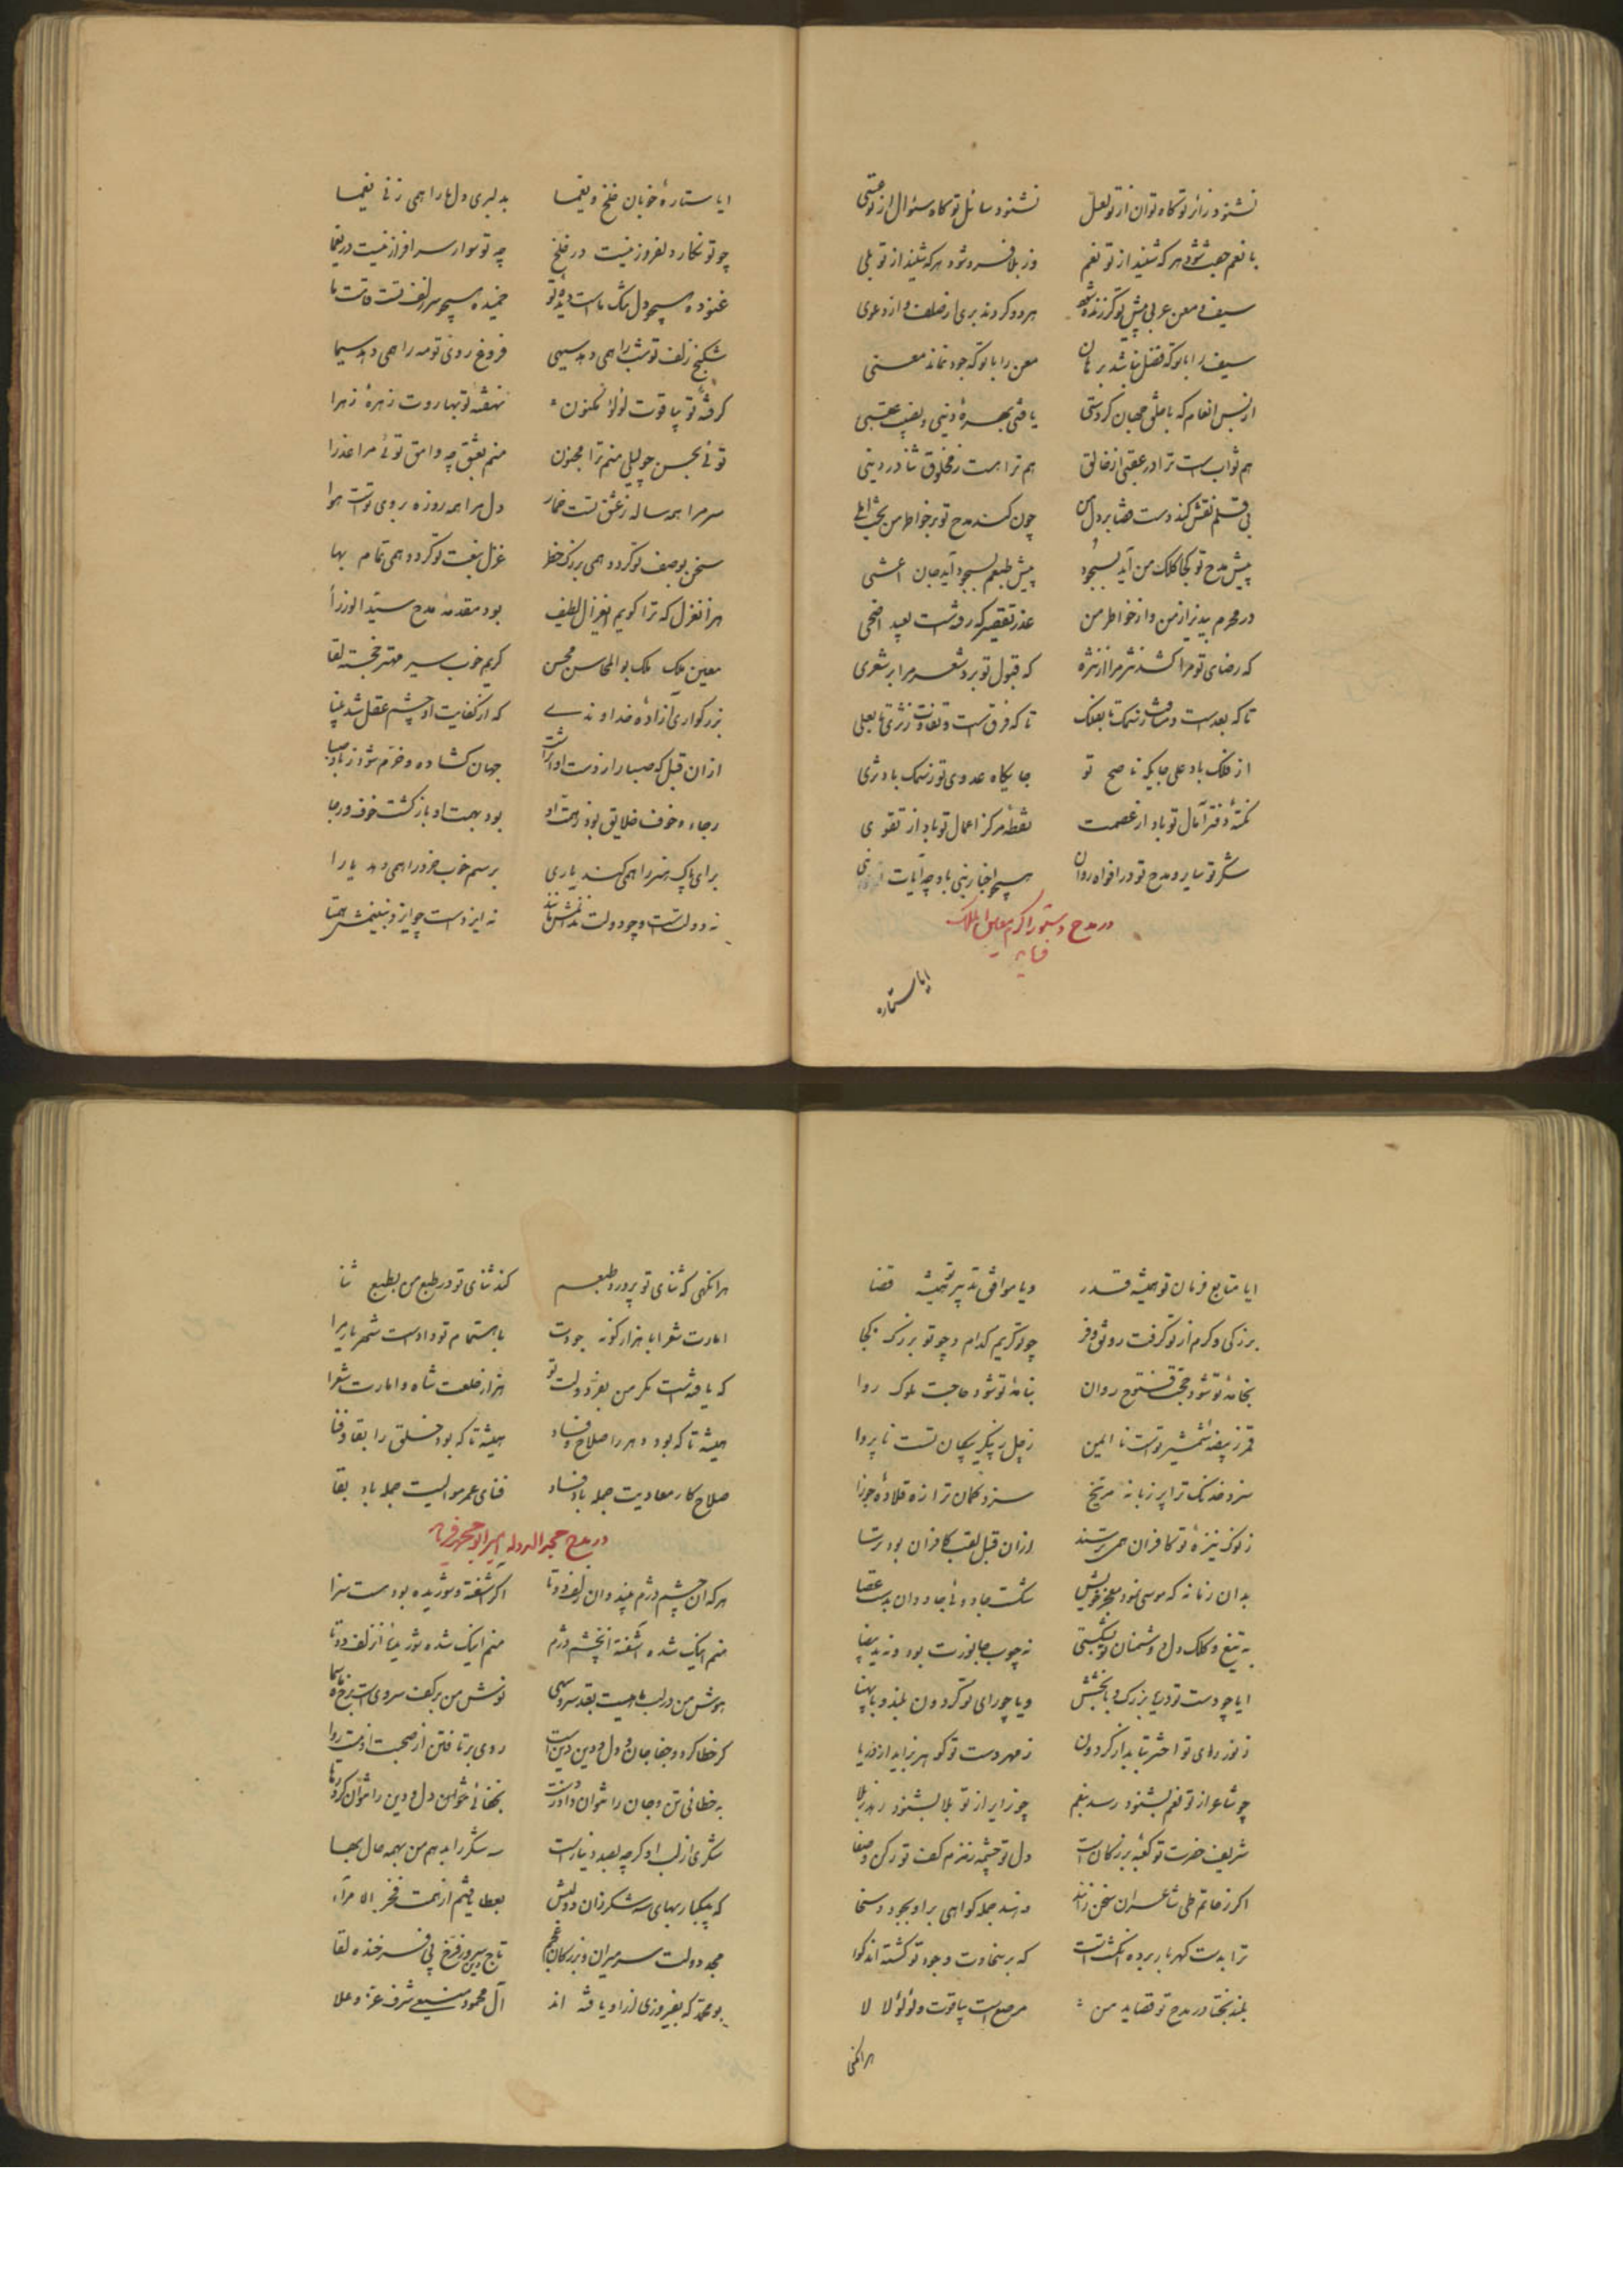 نشنود زائر تو گاه توان از تو لعل نشنود سائل تو گاه سئوال از تو
با نعم جفت شود هر که شنید از تو نعم وز بلا فرد شود هر که شنید از تو بلی
سیف و معن عربی پیش تو گر زنده شود هر دو گردند بری از صلف و از دعوی
سیف را با تو که فضل نباشد برهان معن را با تو که جود نماند معنی
از بس انعام که با خلق جهان کردستی یافتی بهره دنیی و نصیب عقبی
هم ثواب است ترا در عقبی از خالق هم ترا هست ز مخلوق ثنا در دنیی
بی قلم نقش کند دست قضا بر دل من چون کند مدح تو بر خواطر من
پیش مدح تو کجا کلک من آید بسجود پیش طبعم بسجود آید جان اعشی
در محرم بپذیر از من و از خواطر من عذر تقصیر که رفته است بعید اضحی
که رضای تو مرا کشد نثر مرا از نثره که قبول تو برد شعر مرا بر شعری
تا که بعد است و مسافت ز سمک تا بفلک تا که فرق است و تفاوت ز ثری تا بعلی
از فلک باد علی جایگه ناصح تو جایگاه عدوی تو ز سمک باد ثری
نکته دفتر آمال تو باد از عصمت نقطه مرکز اعمال تو باد از تقوی
شکر تو سایر و مدح تو در افواه روان همچو اخبار نبی باد چه آیات
در مدح دستور اکرم معین الملک
فرماید
ایا ستاره
ایا ستاره خوبان خلخ و یغما بدلبری دل ما را همی زنی یغما
چو تو نگار دلفروز نیست در خلخ چه تو سوار سرافراز نیست در یغما
غنوده همچو دل تنگ ماست دیده تو خمیده همچو سر زلف تست قامت ما
شکنج زلف تو شب را همی دهد سیهی فروغ روی تو مه را همی دهد سیما
گرفته تو بیاقوت لؤلؤ مکنون نهفته تو بهاروت زهره زهرا
توئی بحسن چو لیلی منم ترا مجنون منم بعشق چه وامق توئی مرا عذرا
سر مرا همه ساله ز عشق تست خمار دل مرا همه روزه بروی تست هوا
سخن بوصف تو گردد همی بزرگ خطر غزل بنعت تو گردد همی تمام بها
هر آن غزل که ترا گویم ای غزال لطیف بود مقدمه مدح سید الوزرا
معین ملک ملک بو المحاسن محسن کریم خوب سیر مهتر خجسته لقا
بزرگواری آزاده خداوندی که از کفایت او چشم عقل شد بینا
از ان قبل که صبا را ز دست او اثر است جهان گشاده و خرم شود ز باد صبا
رجاء و خوف خلایق بود ز همت او بود بهمت او بازگشت خوف و رجا
برای پاک هنر را همی کند یاری برسم خوب خرد را همی دهد یارا
نه دولت است و چو دولت ندانمش مانند نه ایزدست چو ایزد نبینمش همتا
ایا متابع فرمان تو همیشه قدر و یا موافق تدبیر تو همیشه قضا
بزرگی و کرم از تو گرفت رونق و فر چو تو کریم کدام و چو تو بزرگ کجا
بخامه تو شود حجت فتوح روان بنامه تو شود حاجت ملوک روا
قمر ز بیضه شمشیر تست نا ایمن زحل ز پیکر پیکان تست ناپروا
سزد خدنگ ترا پر زبانه مریخ سزد کمان ترا زه قلاده جوزا
ز نوک نیزه تو کافران همی ترسند از ان قبل لقب کافران بود ترسا
بدان زمانه که موسی نمود معجز خویش شکست جادوی جادوان بدست عصا
به تیغ و کلک دل دشمنان تو بشکستی نه چوب جانورت بود و نه ید بیضا
ایا چو دست تو دریا بزرگ و با بخشش و یا چو رای تو گردون بلند و با پهنا
ز نور رای تو اختر بتابد از گردون ز مهر دست تو گوهر بزاید از دریا
چو شاعر از تو نعم بشنود رسد بنعم چو زایر از تو بلا بشنود رهد ز بلا
شریف حضرت تو کعبه بزرگان است دل تو چشمه زمزم کف تو رکن و صفا
اگر ز حاتم طی شاعران سخن رانند دهند جمله گواهی بر او بجود و سخا
ترا بدست گهربار برده انگشت است که بر سخاوت وجود تو گشته اند گوا
بلند بختا در مدح تو قصاید من مرصع است بیاقوت و لؤلؤ لالا
هر آنگهی
هر آنگهی که ثنای تو پرورد طبعم کند ثنای تو در طبع من بطبع ثنا
امارت شعرا با هزار گونه جودت باهتمام تو دادست شهریار مرا
که یافته است مگر من بعز دولت تو هزار خلعت شاه و امارت شعرا
همیشه تا که بود دهر را صلاح و فساد همیشه تا که بود خلق را بقا و فنا
صلاح کار معادیت جمله باد فساد فنای عمر موالیت جمله باد بقا
در مدح مجد الدوله امیر ابو محمد فرماید
هر که ان چشم دژم بیند و ان زلف دوتا اگر آشفته و شوریده بود هست سزا
منم اینک شده آشفته از ان چشم دژم منم اینک شده شوریده از ان زلف دوتا
هوش من در لب ماهیست بقد سرو سهی نوش من بر کف سروی است برخ ماه سما
گر خطا کرد و جفا جان و دل و دین من است روی برتافتن از صحبت او نیست روا
به خطائی تن و جان را نتوان داد ز دست بجفائی دل و دین را نتوان کرد رها
شکری از لب او گرچه بصد دینار است سه شکر را بدهم من بهمه حال بها
که بیکبار بهای سه شکر زان دو لبش بعطا یافتم از همت فخر الامراء
مجد دولت سر میران و بزرگان عجم تاج دین میر فرخ پی فرخنده لقا
بو محمد که بفیروزی از او یافته اند آل محمود منیعی شرف و عز و علا